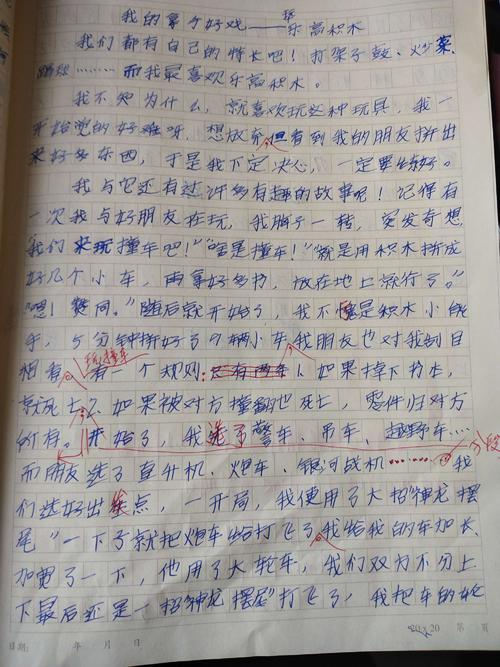 我的拿手好戏——搭乐高积木
我们都有自己的特长吧!打架子鼓、炒菜、
跳绳………而我最喜欢乐高积木。
我不知为什么,就喜欢玩这种玩具,我一
开始觉的好难呀,想放弃但看到我的朋友拼出
来好多东西,于是我下定决心,一定要练好。
我与它还有过许多有趣的故事呢!记得有
一次我与好朋友在玩,我脑子一转,突发奇想
我们来玩撞车吧!”“啥是撞车!”“就是用积木拼成
好几个小车,两拿好多步,放在地上就行了。”
“嗯!赞同。”随后就开始了,我不愧是积木小能
手,5分钟拼好了9辆小车我朋友也对我刮目
相看。有一个规则:1.如果掉下书本,
就死亡2.如果被对方撞翻也死亡,零件归对方
所有。开始了,我选了警车、吊车、越野车……
而朋友选了直升机、炮车、银河战机………我
们选好出发点,一开局,我使用了大招“神龙摆
尾”一下子就把炮车给打飞了我给我的车加长、
加宽了一下,他用了大轮车,我们双方不分上
下最后还是一招“神龙摆尾”打飞了,我把车的轮
玩撞车
分段
日期: 年 月 日
20×20 第 页